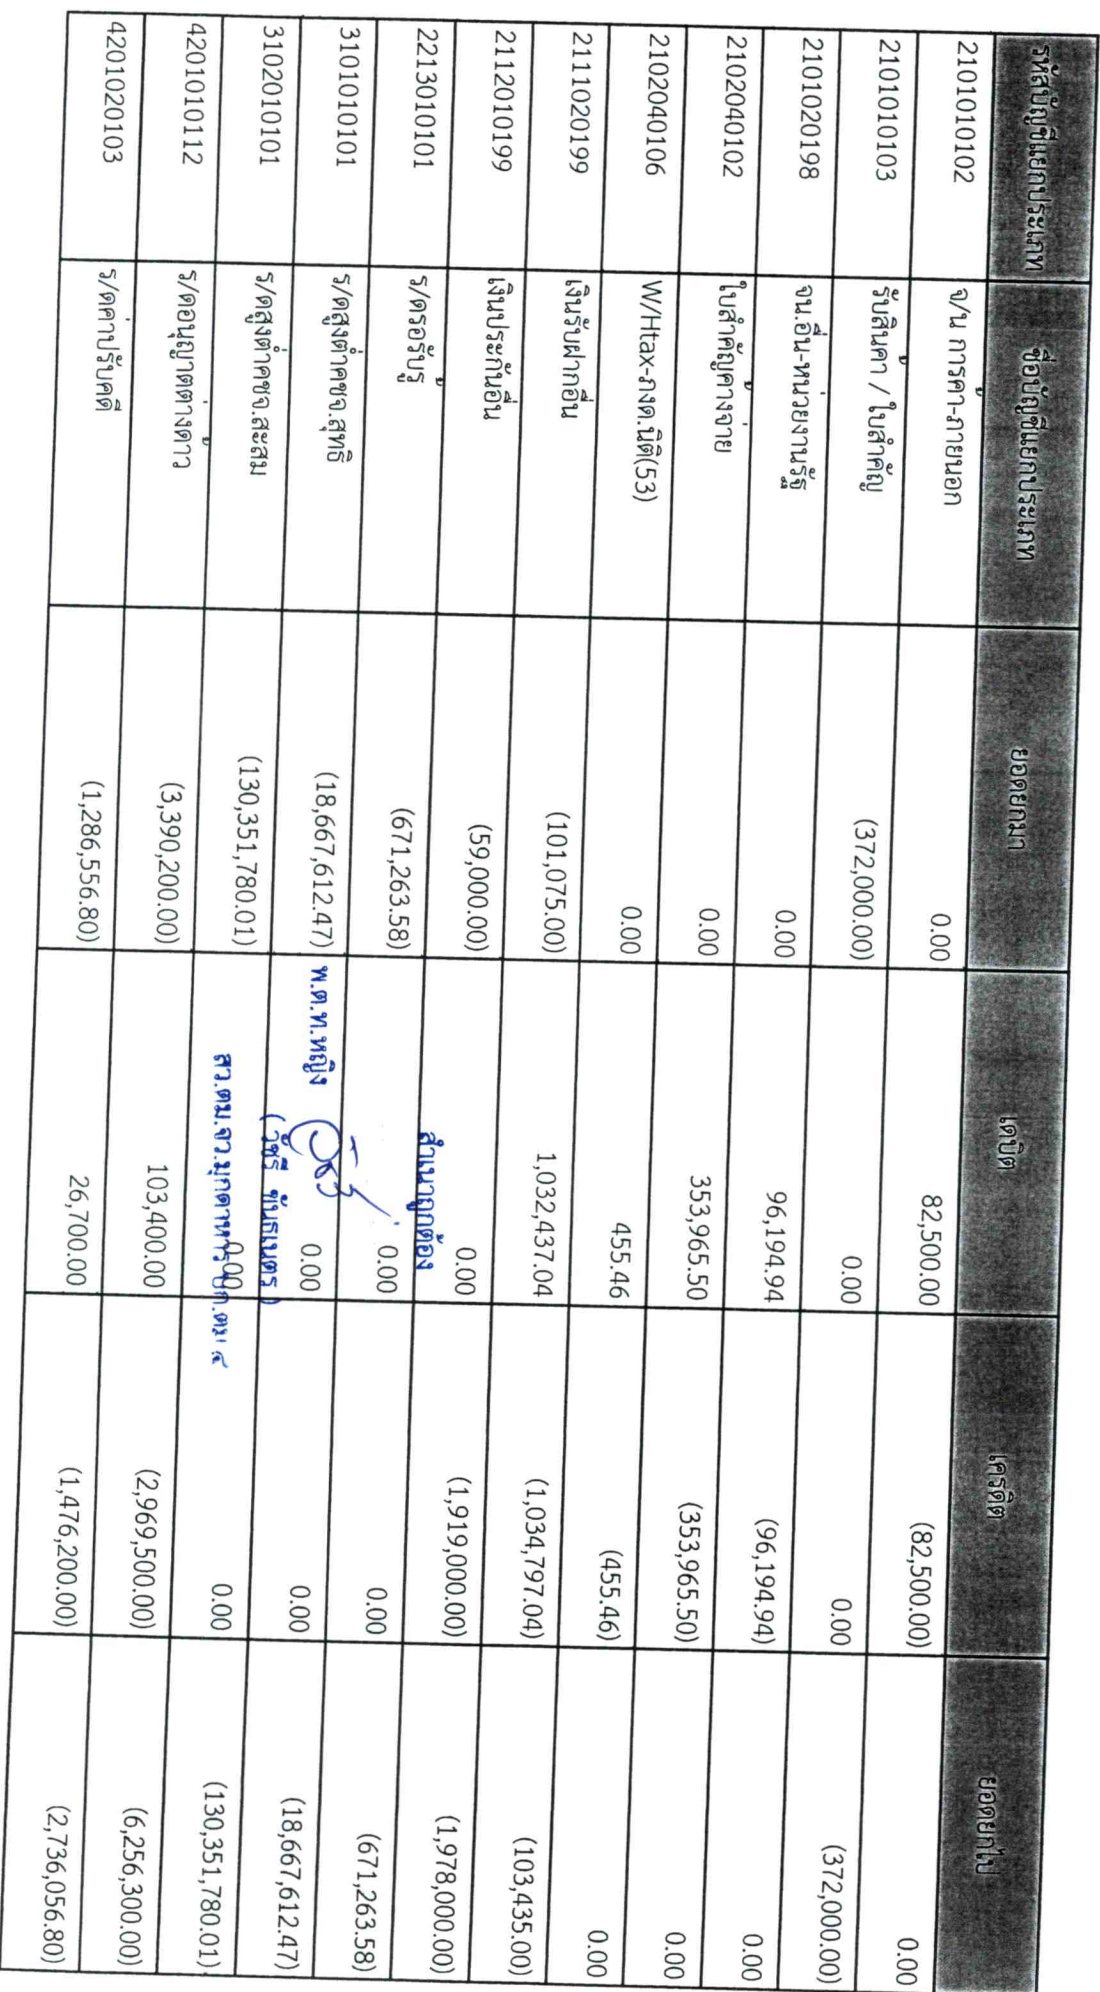 รหัสบัญชีแยกประเภท ชื่อบัญชีแยกประเภท ยอดยกมา เดบิต เครดิต ยอดยกไป
2101010102 จ/น การค้า-ภายนอก 0.00 82,500.00 (82,500.00) 0.00
2101010103 รับสินค้า / ใบสำคัญ (372,000.00) 0.00 0.00 (372,000.00)
2101020198 จน.อื่น-หน่วยงานรัฐ 0.00 96,194.94 (96,194.94) 0.00
2102040102 ใบสำคัญค้างจ่าย 0.00 353,965.50 (353,965.50) 0.00
2102040106 W/Htax-ภงด.นิติ(53) 0.00 455.46 (455.46) 0.00
2111020199 เงินรับฝากอื่น (101,075.00) 1,032,437.04 (1,034,797.04) (103,435.00)
2112010199 เงินประกันอื่น (59,000.00) 0.00 (1,919,000.00) (1,978,000.00)
2213010101 ร/ดรอรับรู้ (671,263.58) 0.00 0.00 (671,263.58)
3101010101 ร/ดสูงต่ำคชจ.สุทธิ (18,667,612.47) 0.00 0.00 (18,667,612.47)
3102010101 ร/ดสูงต่ำคชจ.สะสม (130,351,780.01) 0.00 0.00 (130,351,780.01)
4201010112 ร/ดอนุญาตต่างด้าว (3,390,200.00) 103,400.00 (2,969,500.00) (6,256,300.00)
4201020103 ร/ดค่าปรับคดี (1,286,556.80) 26,700.00 (1,476,200.00) (2,736,056.80)
สำเนาถูกต้อง
พ.ต.ท.หญิง
(วัชรี ขันธเนตร)
สว.ตม.จว.มุกดาหาร บก.ตม.๔